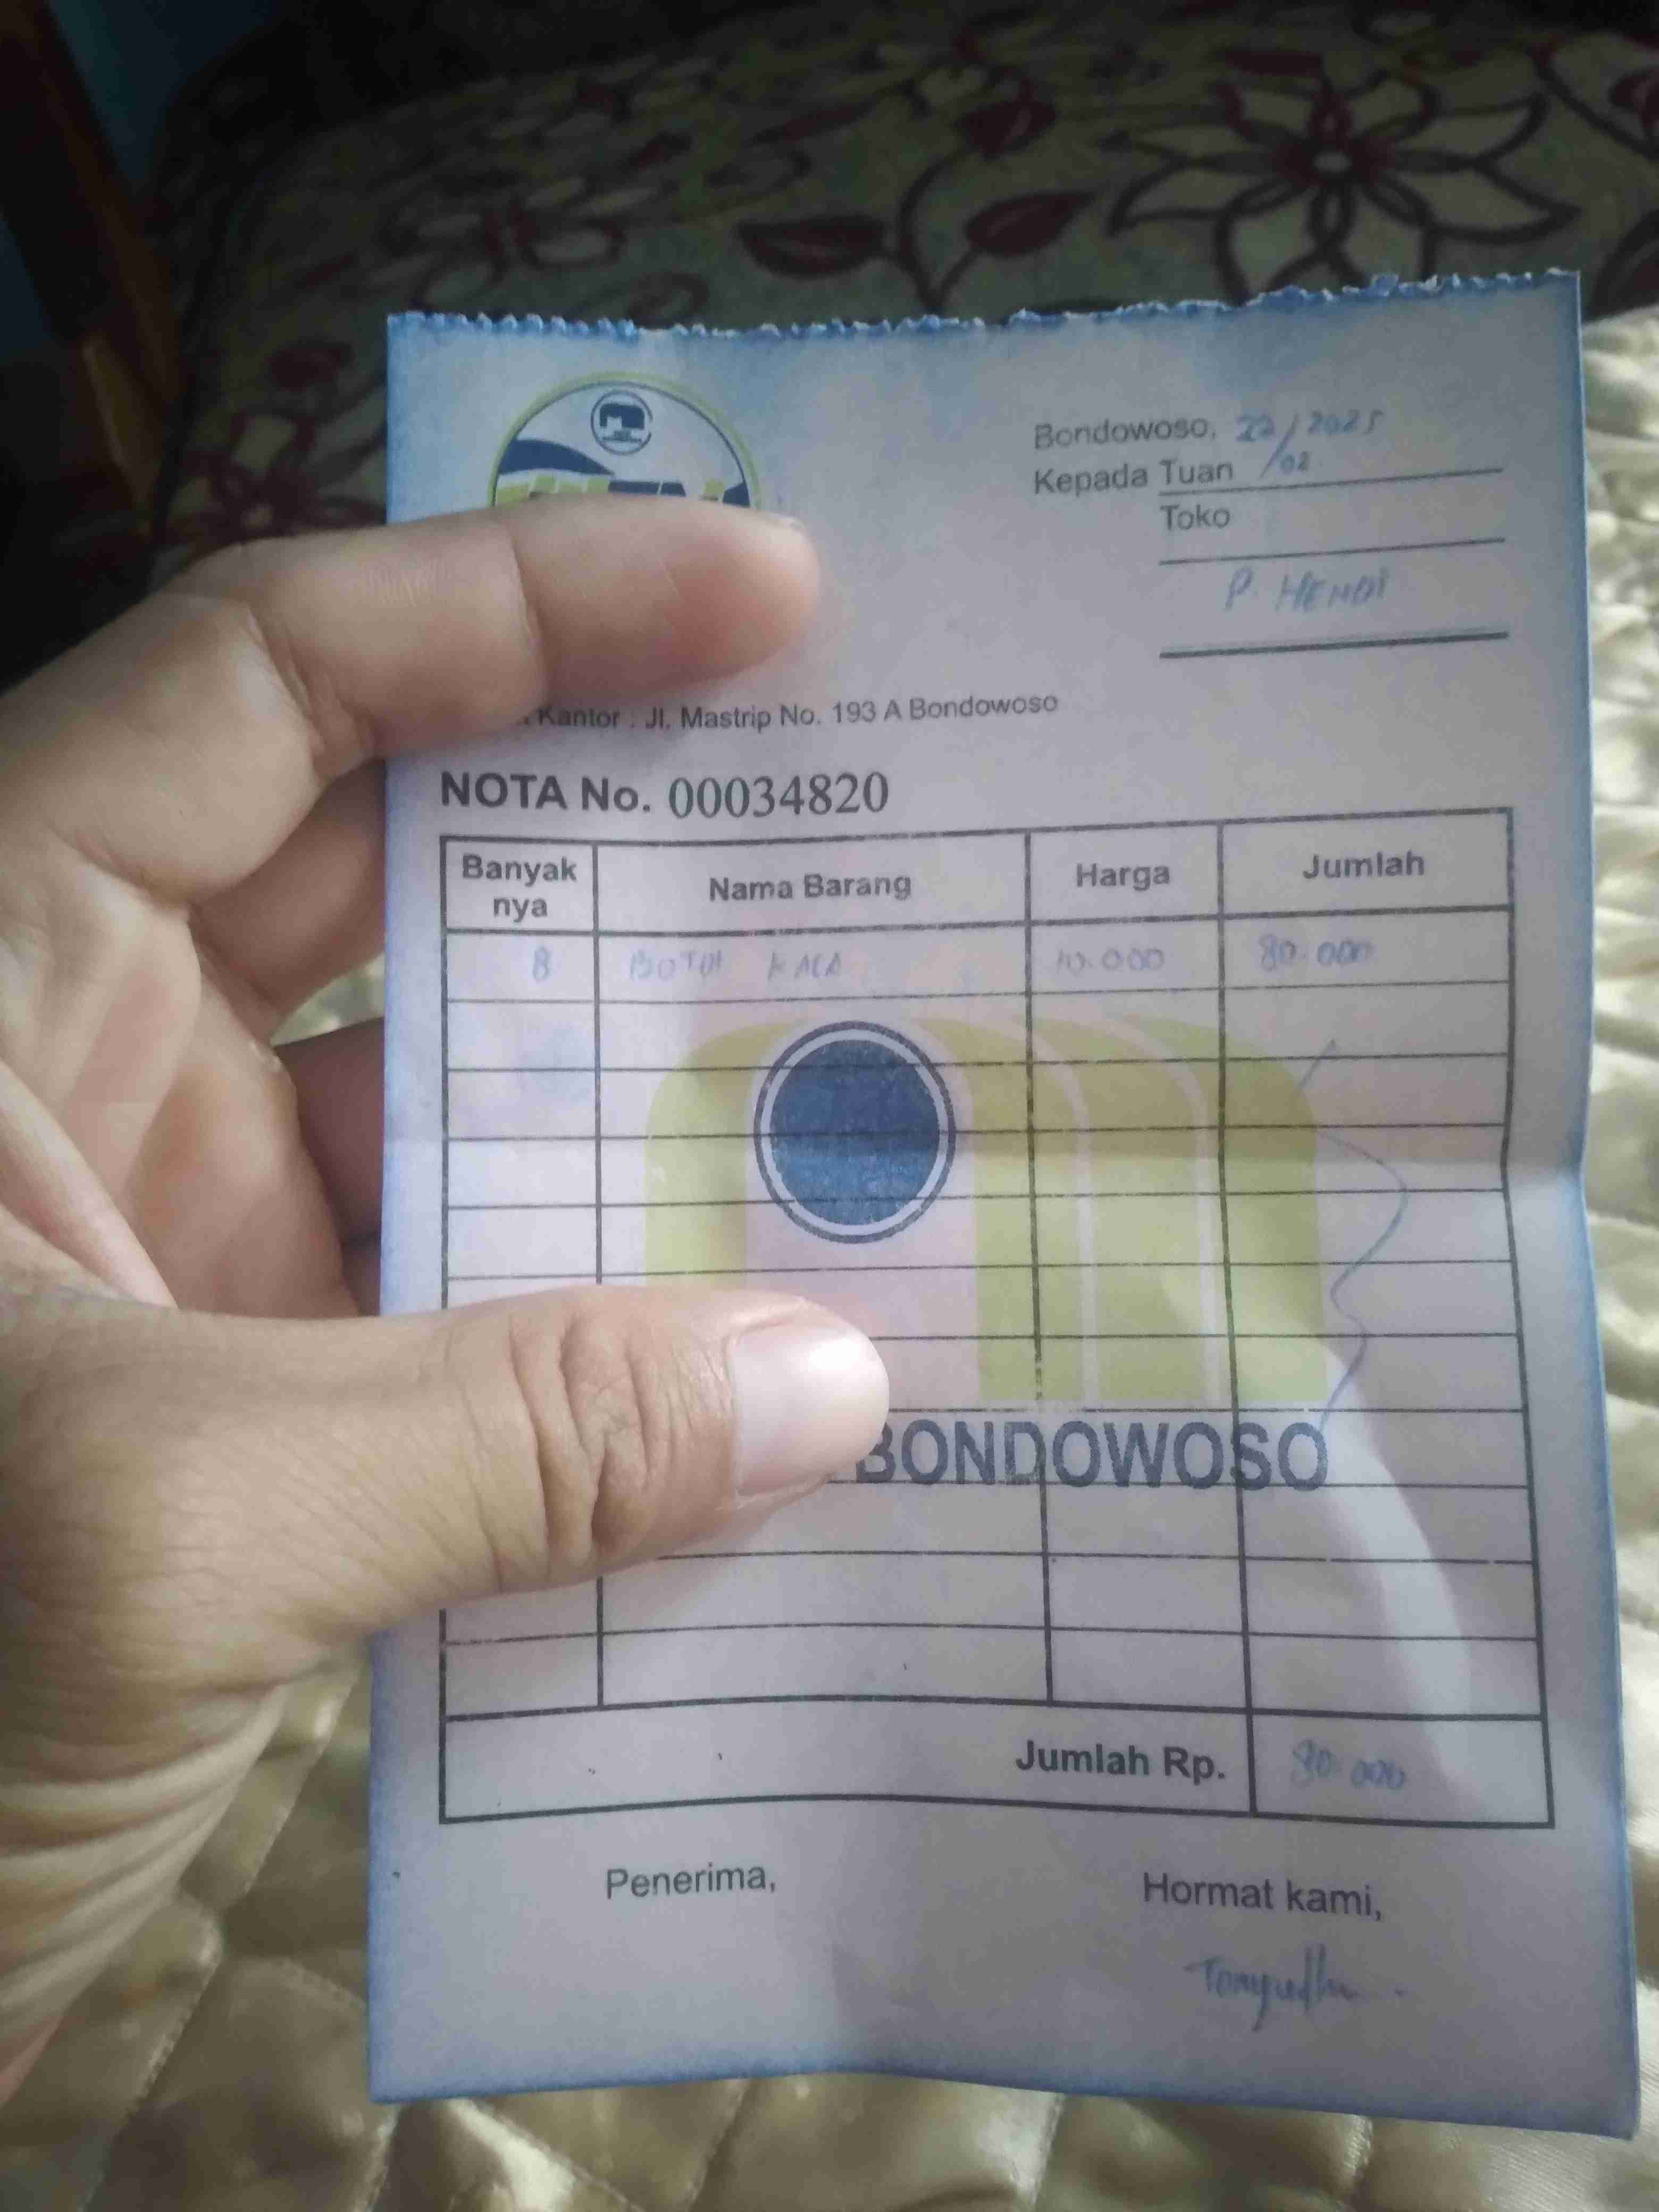 Bondowoso, 22/02/2025
Kepada Tuan
Toko
P. HENDI
Kantor : Jl. Mastrip No. 193 A Bondowoso
NOTA No. 00034820
Banyak nya Nama Barang Harga Jumlah
8 BOTOL KACA 10.000 80.000
BONDOWOSO
Jumlah Rp. 80.000
Penerima, Hormat kami,